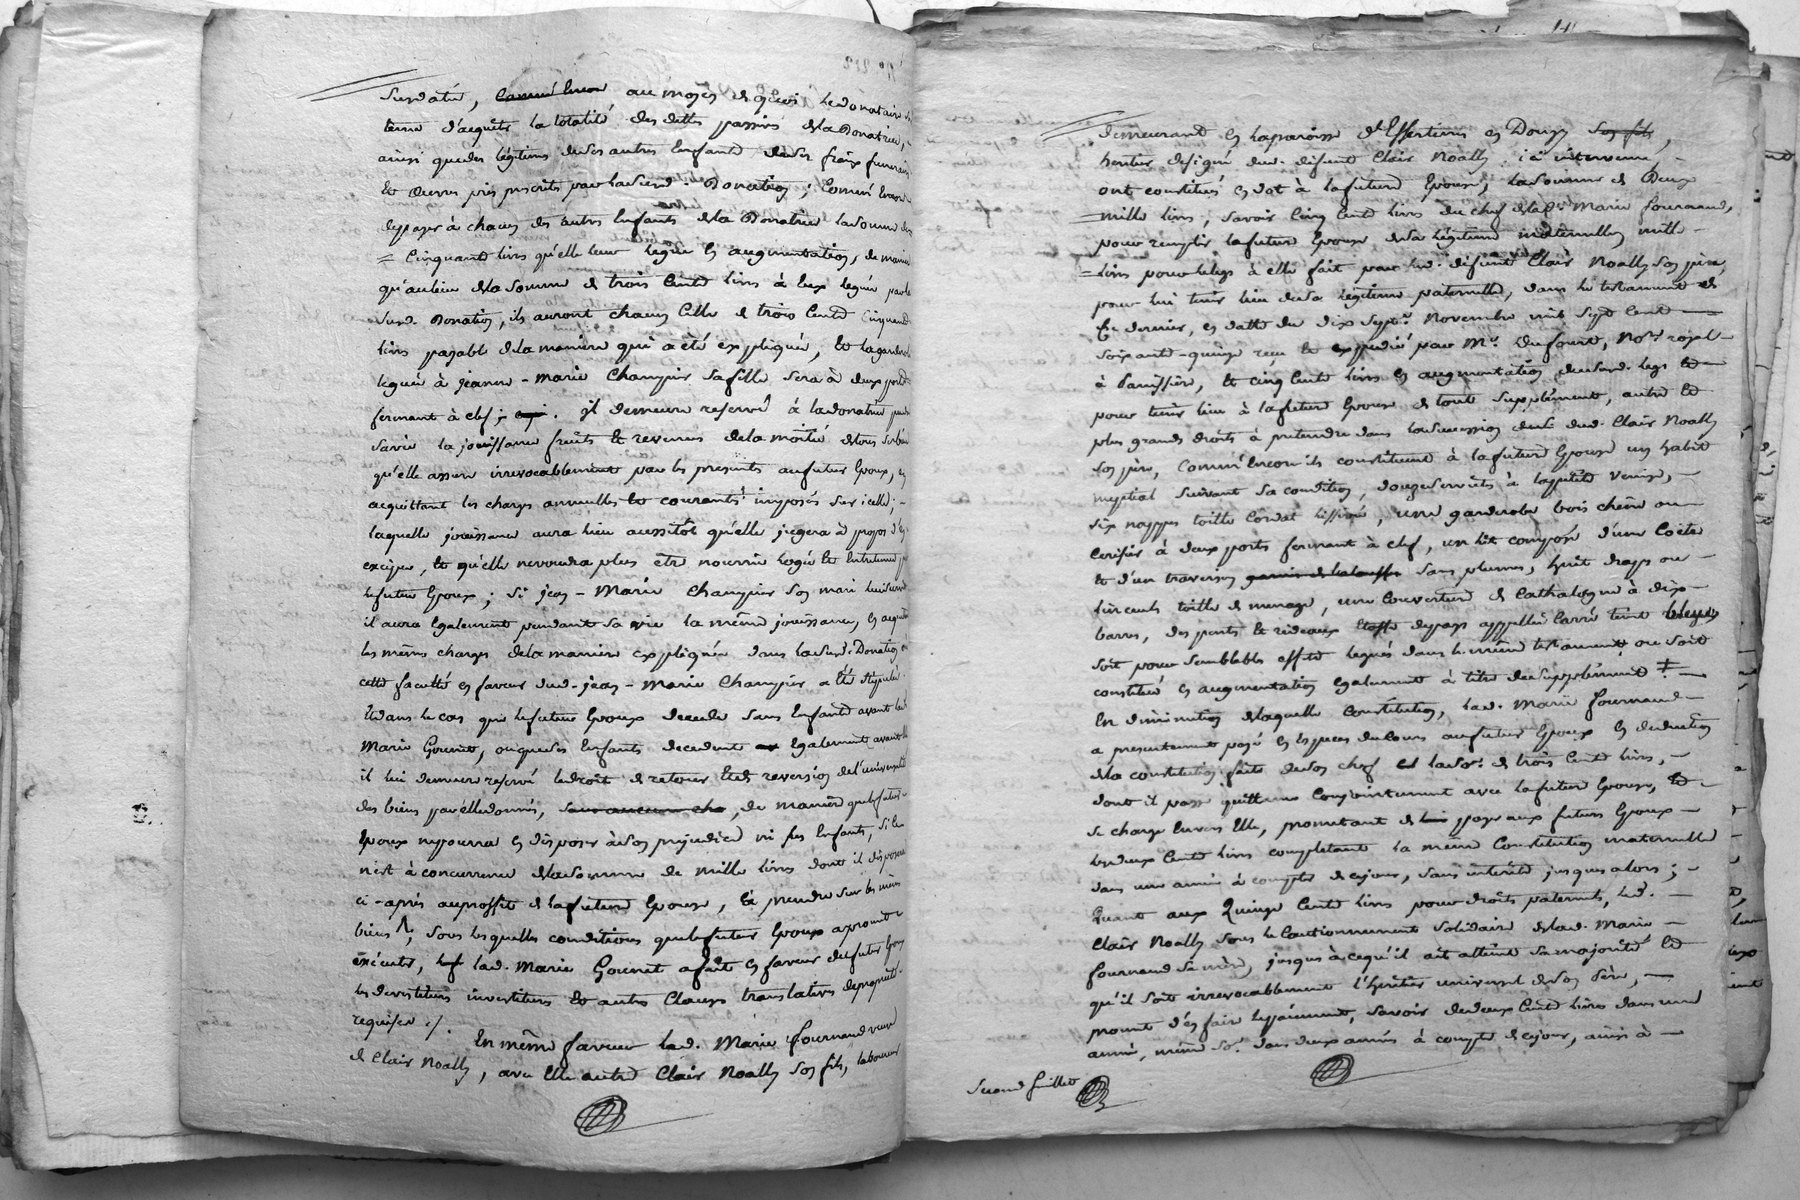 susdatté, comme encore au moyen de quoi le donataire sera
tenu d'acquitter la totalité des dettes passives de la Donatrice,
ainsi que des légitimes de ses autres Enfants, de ses fraix funeraires
et œuvres pies prescrits par la susd. Donation; comm'encore
de payer à chacun des autres Enfants de la Donatrice la somme de
= Cinquante livres qu'elle leur lègue en augmentation, de maniere
qu'au lieu de la somme de trois Cents livres à Eux leguée par la
susd. Donation, ils auront chacun Celle de trois Cents Cinquante
livres payable de la maniere qui a été expliquée, Et la garderobe
leguée à jeanne-Marie Champier sa fille sera à deux portes
fermant à clef; . il demeure reservé à la donatrice pendant
sa vie la jouissance fruits et revenus de la moitié de tous ses biens
qu'elle assure irrevocablement par les presentes au futur Epoux, en
acquittant les charges annuelles et courantes imposées sur icelle; -
laquelle jouissance aura lieu aussitôt qu'elle jugera à propos d'en
exciper, et qu'elle ne voudra plus etre nourrie logée et entretenue par
le futur Epoux; si jean-Marie Champier son mari lui survit
il aura Egalement pendant sa vie la même jouissance, en acquittant
les mêmes charges de la maniere expliquée dans la susd. Donation
cette faculté en faveur dud. jean-Marie Champier a été stipulée.
Et dans le cas que le futur Epoux decede sans Enfants avant lad.
Marie Gounet, ou que ses Enfants decedent Egalement avant elle
il lui demeure reservé le droit de retour Et de reversion de l'universalité
des biens par elle donnés, sans aucune cha, de maniere que le futur
Epoux ne pourra en disposer à son prejudice ni ses Enfants, si ce
n'est à concurrence de la somme de mille livres dont il disposera
ci-après au proffit de la future Epouse, Et à prendre sur les mêmes
biens, sous lesquelles conditions que le futur Epoux a promis
exécuter, lad. Marie Gounet a fait en faveur du futur Epoux
les devestitures investitures et autres Clauses translatives de propriété
requises ./.
En même faveur lad. Marie fournand veuve
de Clair Noally, avec Elle autre Clair Noally son fils, laboureur
demeurant en la paroisse d'Essertines en Donzy son fils,
heritier designé dud. defunt Clair Noally ici intervenu, -
ont constitué en dot à la future Epouse, la somme de Deux
= mille livres, savoir Cinq Cents livres du chef de lad. Marie fournand,
pour remplir la future Epouse de sa légitime maternelle, mille -
= livres pour le legs à elle fait par led. defunt Clair Noally son père,
pour lui tenir lieu de sa légitime paternelle, dans le testament de
Ce dernier, en datte du dix sept Novembre mil sept Cent —
soixante-quinze reçu et expedié par Me. Dufour, Nore. royal -
à Panissière, et cinq Cents livres en augmentation dud. legs et —
pour tenir lieu à la future Epouse de tout supplément, autre et
plus grands droits à pretendre dans la succession dud. Clair Noally
son père, Comm'encore ils constituent à la future Epouse un habit
nuptial suivant sa condition, douze serviettes à la petite Venise, -
six nappes toille Cordat lissivée, une garderobe bois chêne ou —
Cerisier à deux portes fermant à clef, un lit composé d'une Coëte
et d'un traversin garnis de balouffe sans plumes, huit draps ou -
linceuls toille de menage, une Couverture de Cathalogne à dix -
barres, des pentes et rideaux étoffe de pays appellée Carré teint bleuë,
soit pour semblables effets legués dans le même testament, ou soit
constitué en augmentation Egalement à titre de supplément ‡ —
En diminution de laquelle Constitution, lad. Marie fournand —
a presentement payé en Especes de Cours au futur Epoux en deduction
de la constitution faite de son chef la so: de trois Cents livres, -
dont il passe quittance Conjointement avec la future Epouse, Et -
se charge Envers Elle, promettant de payer aux futurs Epoux —
les deux Cents livres completant la même Constitution maternelle
dans une année à compter de ce jour, sans intérêts jusques alors; -
Quant aux Quinze Cents livres pour droits paternels, led. —
Clair Noally sous le Cautionnement solidaire de lad. Marie —
fournand sa mère, jusqu'à ce qu'il ait atteint sa majorité Et
qu'il soit irrevocablement l'héritier universel de son Père, —
promet d'en faire le payement, savoir de deux Cents livres dans une
année, même so: dans deux années à compter de ce jour, ainsi à —
second feuillet